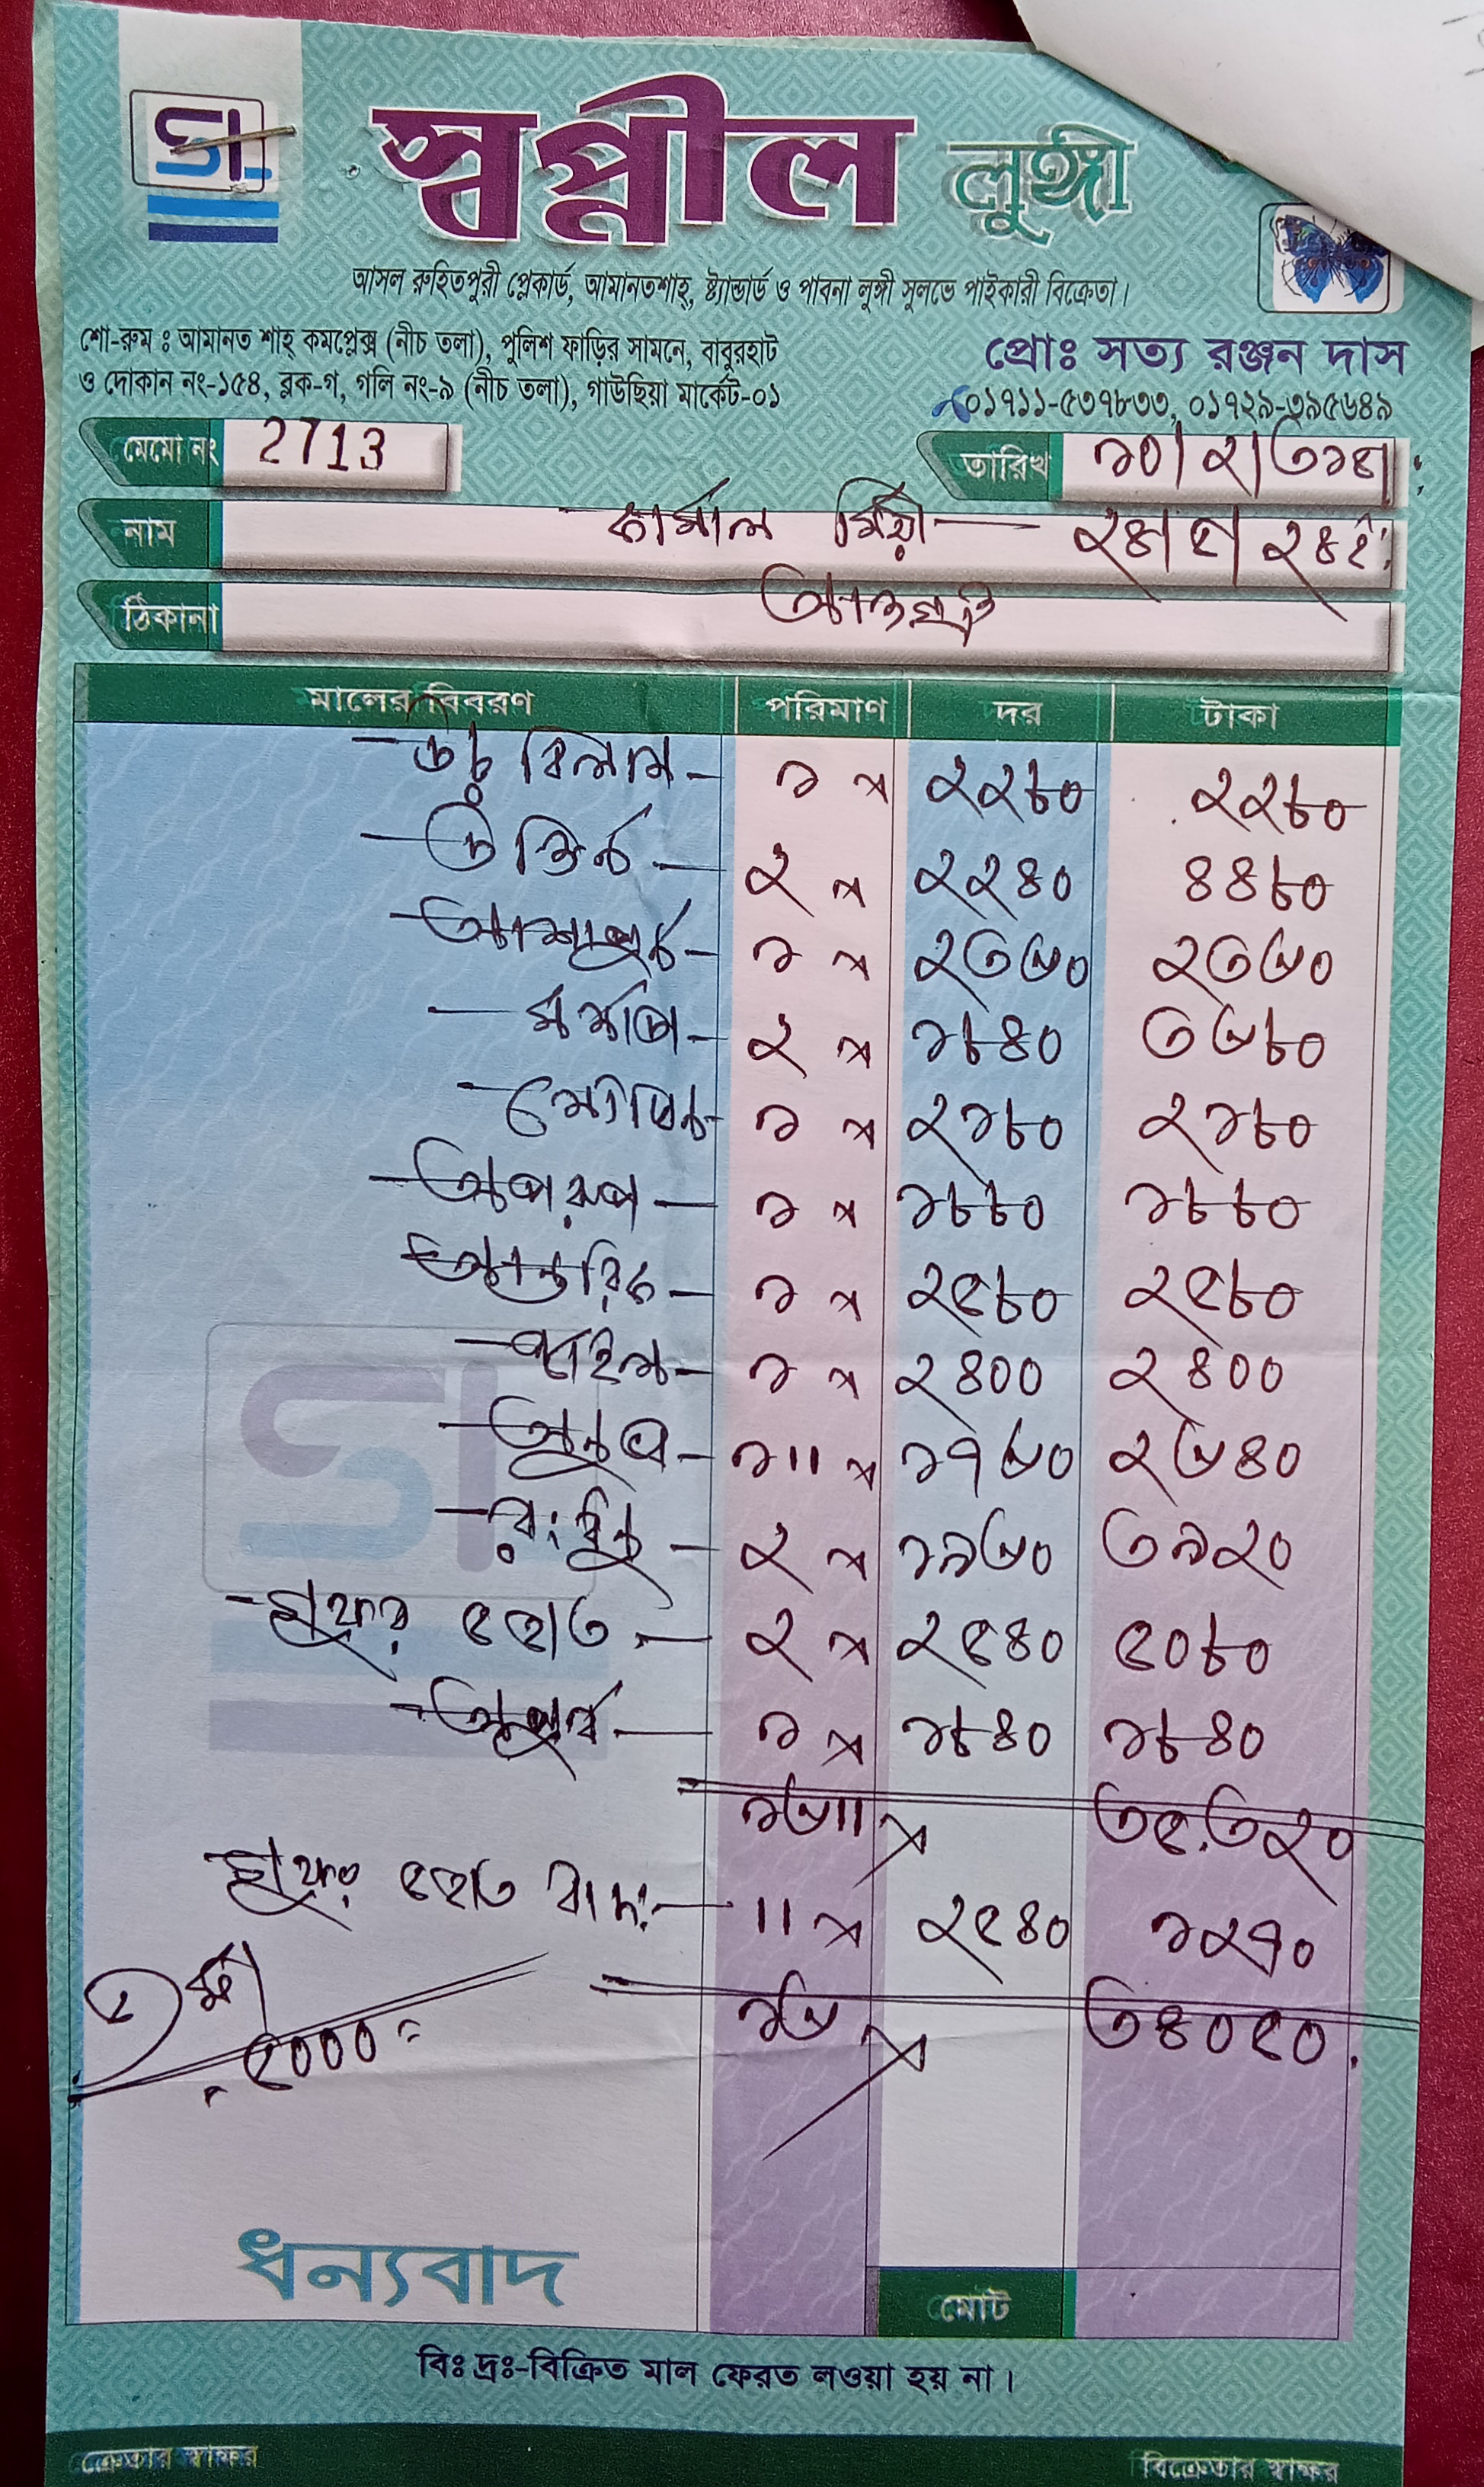 SL
স্বপ্নীল লুঙ্গী
আসল রুহিতপুরী প্লেকার্ড, আমানতশাহ্, ষ্ট্যান্ডার্ড ও পাবনা লুঙ্গী সুলভে পাইকারী বিক্রেতা।
শো-রুম ঃ আমানত শাহ্ কমপ্লেক্স (নীচ তলা), পুলিশ ফাড়ির সামনে, বাবুরহাট
ও দোকান নং-১৫৪, ব্লক-গ, গলি নং-৯ (নীচ তলা), গাউছিয়া মার্কেট-০১
প্রোঃ সত্য রঞ্জন দাস
০১৭১১-৫৩৭৮৩৩, ০১৭২৯-৩৯৫৬৪৯
মেমো নং 2713
তারিখ ১০/২/
নাম কামাল মিয়া
ঠিকানা
মালের বিবরণ পরিমাণ দর টাকা
বিলাস - ১ ২২৮০ ২২৮০
২ ২২৪০ ৪৪৮০
১ ২৩৬০ ২৩৬০
২ ১৮৪০ ৩৬৮০
১ ২১৮০ ২১৮০
অপরূপ - ১ ১৮৮০ ১৮৮০
আন্তরিক - ১ ২৫৮০ ২৫৮০
১ ২৪০০ ২৪০০
১॥ ১৭৬০ ২৬৪০
২ ১৯৬০ ৩৯২০
৫হাত - ২ ২৫৪০ ৫০৮০
অপূর্ব - ১ ১৮৪০ ১৮৪০
১৬॥ ৩৫৩২০
৫হাত বাদ - ॥ ২৫৪০ ১২৭০
১৬ ৩৪০৫০
৫০০০
ধন্যবাদ
মোট
বিঃ দ্রঃ-বিক্রিত মাল ফেরত লওয়া হয় না।
ক্রেতার স্বাক্ষর বিক্রেতার স্বাক্ষর